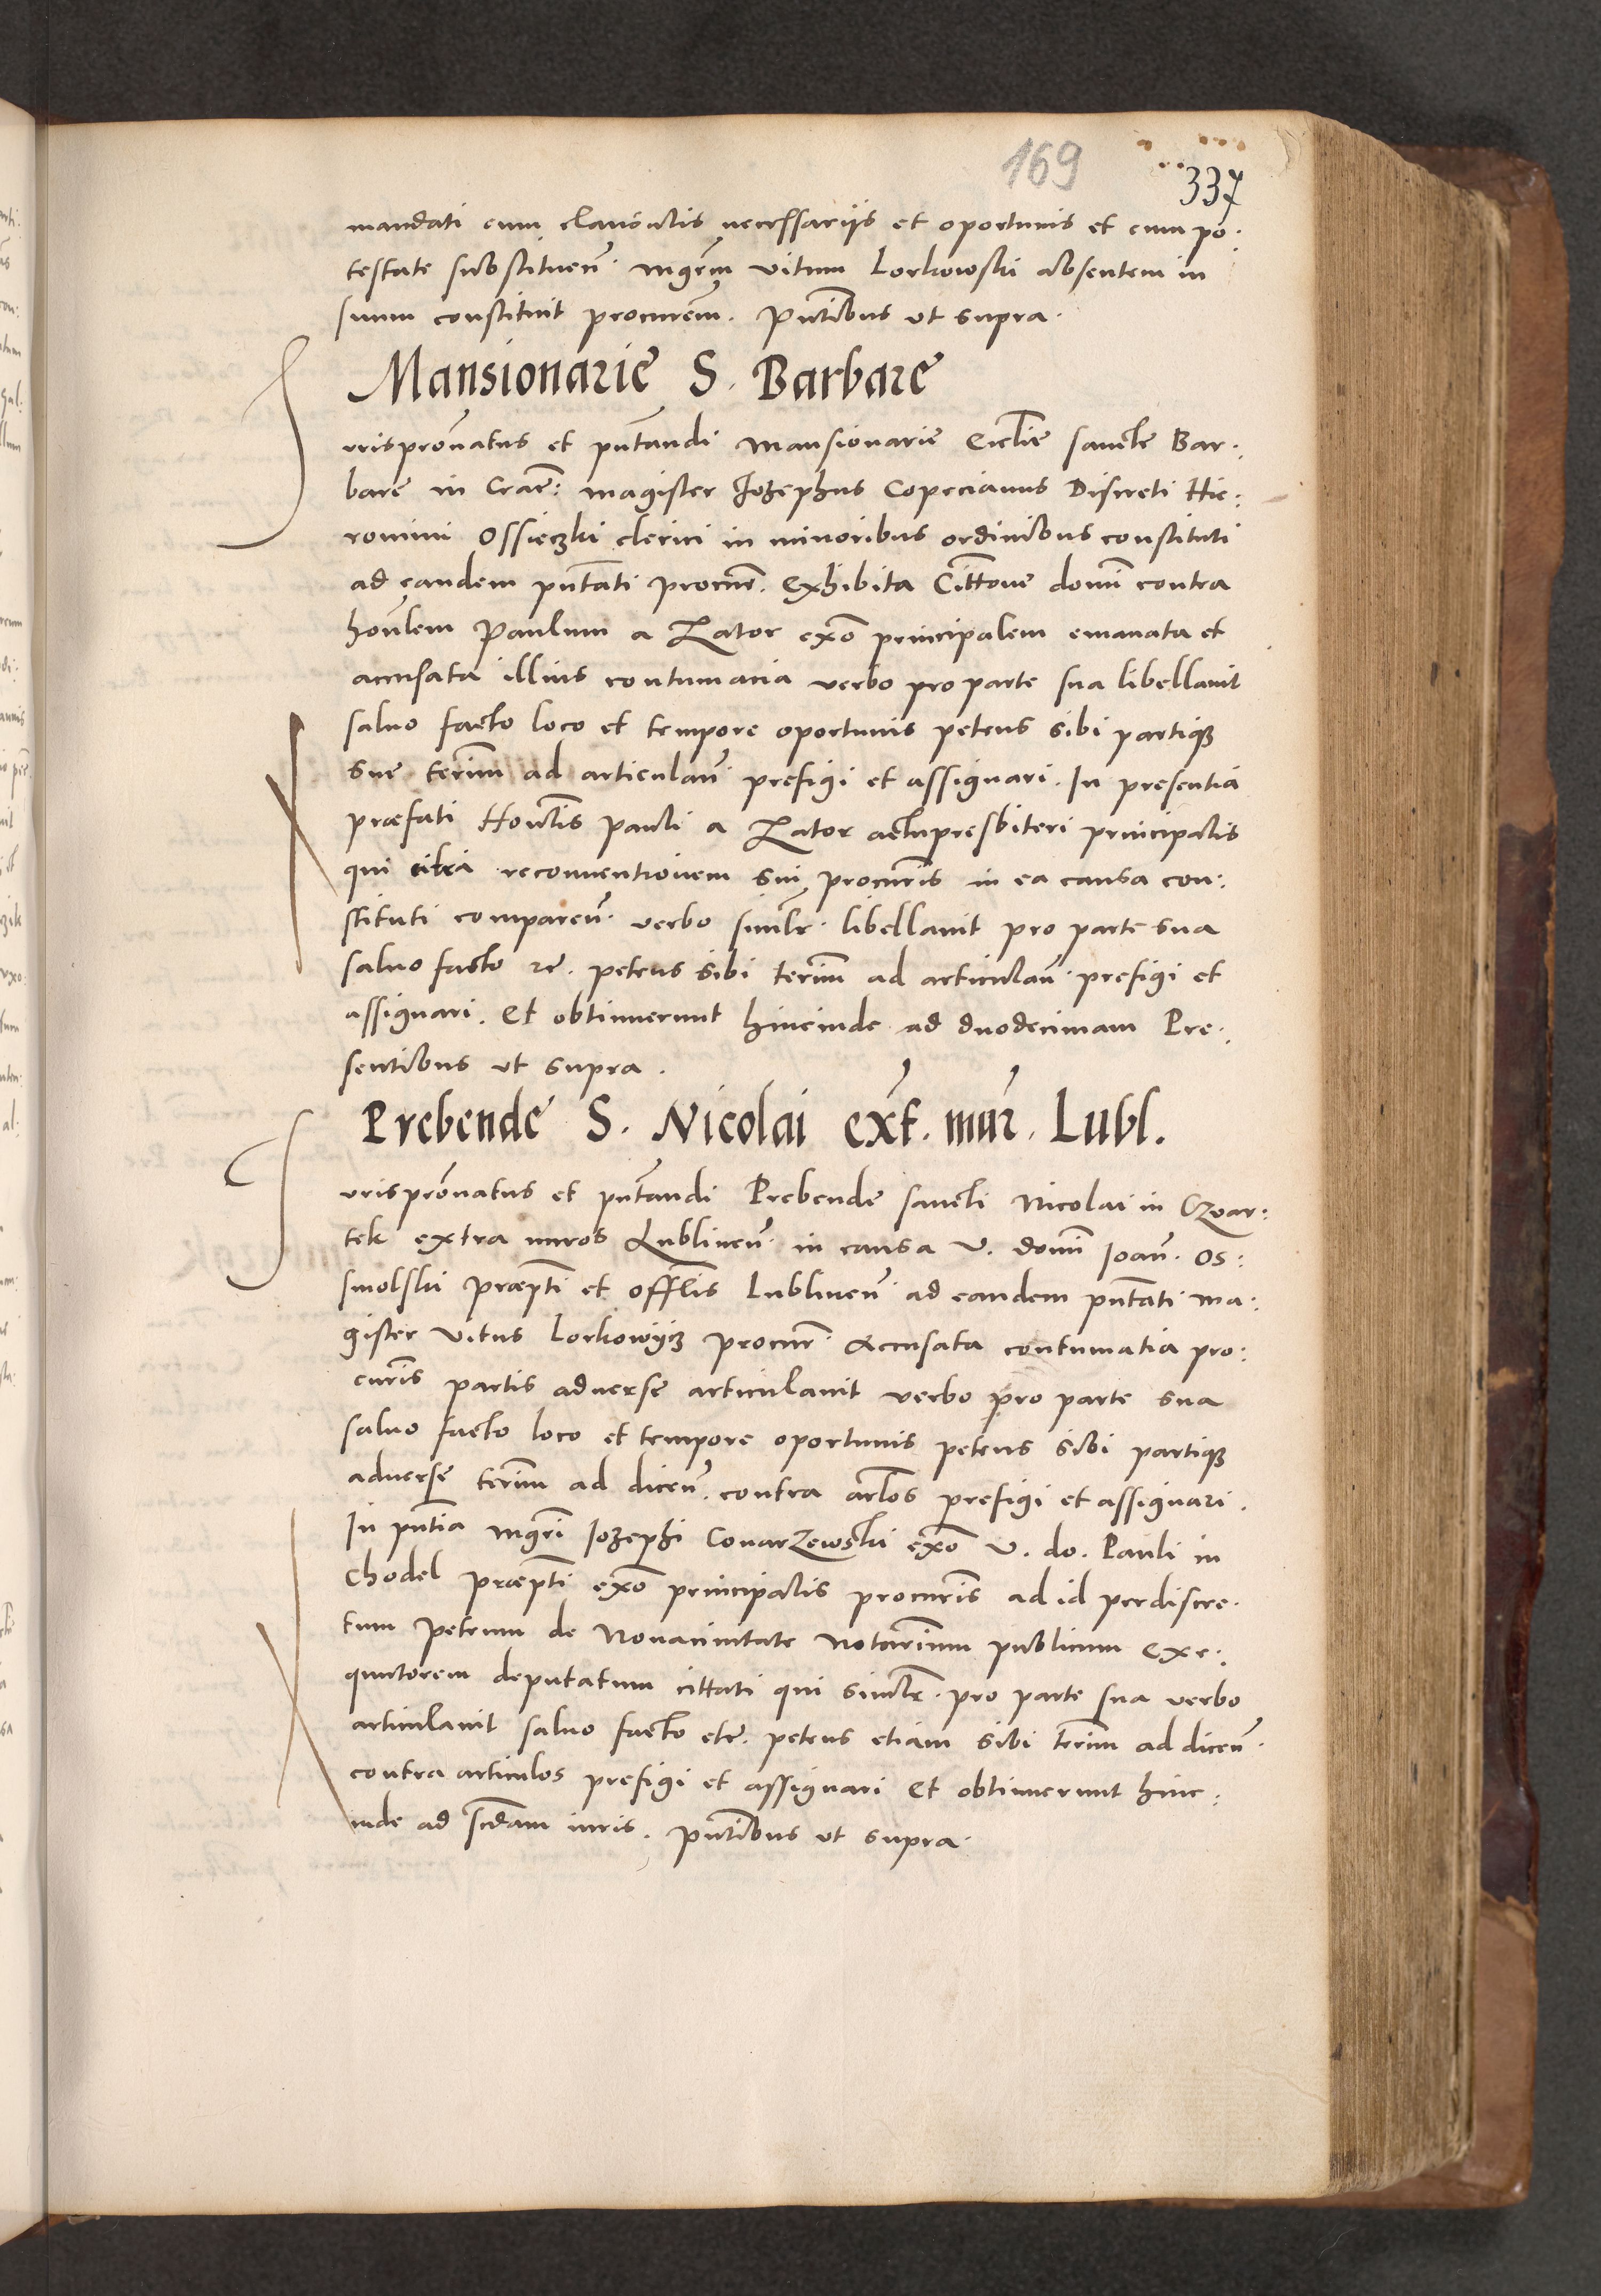 169
337
mandati cum clausulis necessariis et oportunis et cum po:
testate substituen̄. mgr̄m vitum Lorkowski absentem in
suum constituit procur̄em. Pn̄tibus ut supra.
Mansionarie S. Barbare
Jurispron̄atus et pn̄tandi Mansionarie Eccl̄ie sancte Bar:
bare in Crac̄: magister Jozephus Copecianus Discreti Hie:
ronimi Ossieczki clerici in minoribus ordinibus constituti
ad eandem pn̄tati procur̄. Exhibita Citt̄one domi contra
hon̄lem Paulum a Zator ex̄o principalem emanata et
accusata illius contumacia verbo pro parte sua libellavit
salvo facto loco et tempore oportunis petens sibi partiqȝ
sue term̄ ad articulan̄. prefigi et assignari. In presentia
præfati Hon̄lis Pauli a Zator actupresbiteri principalis
qui citra reconventionem sui procur̄is in ea causa con:
stituti comparen̄. verbo simlr̄. libellavit pro parte sua
salvo facto rē. petens sibi term̄ ad articulan̄. prefigi et
assignari. Et obtinuerunt hincinde ad duodecimam Pre:
sentibus ut supra.
Prebende S. Nicolai ext̄. mur̄. Lubl.
Jurispron̄atus et pn̄tandi Prebende sancti Nicolai in Czwar:
tek extra muros Lublinen̄. in causa V. domi Joan̄. Os:
smolski præpt̄i et offl̄is Lublinen̄ ad eandem pn̄tati ma:
gister Vitus Lorkowÿcz procur̄. Accusata contumatia pro:
cur̄is partis adverse articulavit verbo pro parte sua
salvo facto loco et tempore oportunis petens sibi partiqȝ
adverse term̄ ad dicen̄. contra art̄los prefigi et assignari.
In pn̄tia mgr̄i Jozephi Conarzewski ex̄o V. do. Pauli in
Chodel præpt̄i ex̄o principalis procur̄is ad id perdiscre:
tum Petrum de Novacivitate Notarium publicum Exe:
quutorem deputatum cittati qui simlr̄. pro parte sua verbo
articulavit salvo facto etc̄. petens etiam sibi term̄ ad dicen̄.
contra articulos prefigi et assignari Et obtinuerunt hinc:
inde ad scd̄am iuris. Pn̄tibus ut supra.